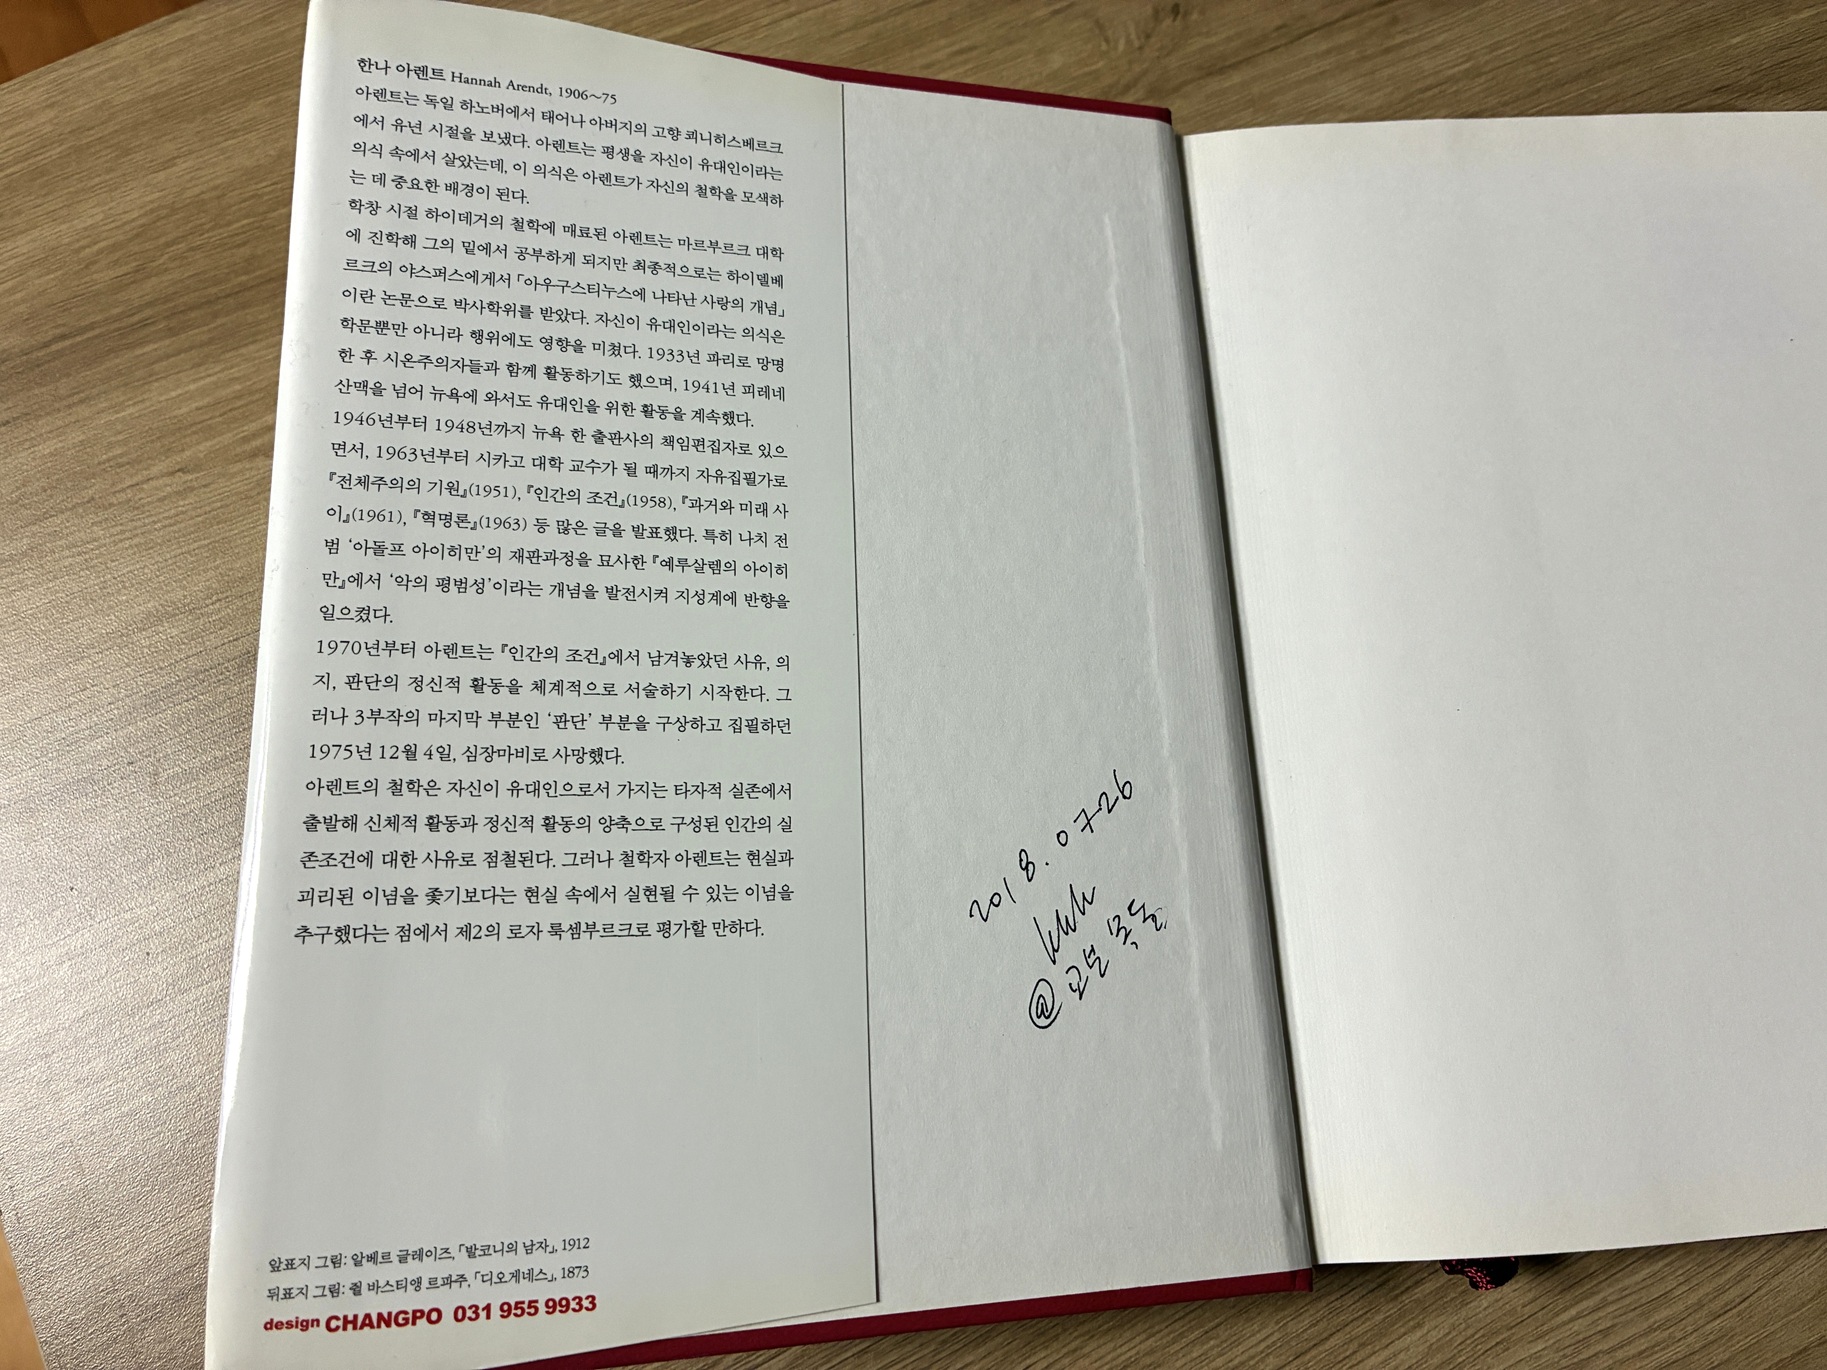 한나 아렌트 Hannah Arendt, 1906~75
아렌트는 독일 하노버에서 태어나 아버지의 고향 쾨니히스베르크
에서 유년 시절을 보냈다. 아렌트는 평생을 자신이 유대인이라는
의식 속에서 살았는데, 이 의식은 아렌트가 자신의 철학을 모색하
는 데 중요한 배경이 된다.
학창 시절 하이데거의 철학에 매료된 아렌트는 마르부르크 대학
에 진학해 그의 밑에서 공부하게 되지만 최종적으로는 하이델베
르크의 야스퍼스에게서 「아우구스티누스에 나타난 사랑의 개념」
이란 논문으로 박사학위를 받았다. 자신이 유대인이라는 의식은
학문뿐만 아니라 행위에도 영향을 미쳤다. 1933년 파리로 망명
한 후 시온주의자들과 함께 활동하기도 했으며, 1941년 피레네
산맥을 넘어 뉴욕에 와서도 유대인을 위한 활동을 계속했다.
1946년부터 1948년까지 뉴욕 한 출판사의 책임편집자로 있으
면서, 1963년부터 시카고 대학 교수가 될 때까지 자유집필가로
『전체주의의 기원』(1951), 『인간의 조건』(1958), 『과거와 미래 사
이』(1961), 『혁명론』(1963) 등 많은 글을 발표했다. 특히 나치 전
범 ‘아돌프 아이히만’의 재판과정을 묘사한 『예루살렘의 아이히
만』에서 ‘악의 평범성’이라는 개념을 발전시켜 지성계에 반향을
일으켰다.
1970년부터 아렌트는 『인간의 조건』에서 남겨놓았던 사유, 의
지, 판단의 정신적 활동을 체계적으로 서술하기 시작한다. 그
러나 3부작의 마지막 부분인 ‘판단’ 부분을 구상하고 집필하던
1975년 12월 4일, 심장마비로 사망했다.
아렌트의 철학은 자신이 유대인으로서 가지는 타자적 실존에서
출발해 신체적 활동과 정신적 활동의 양축으로 구성된 인간의 실
존조건에 대한 사유로 점철된다. 그러나 철학자 아렌트는 현실과
괴리된 이념을 좇기보다는 현실 속에서 실현될 수 있는 이념을
추구했다는 점에서 제2의 로자 룩셈부르크로 평가할 만하다.
앞표지 그림: 알베르 글레이즈, 「발코니의 남자」, 1912
뒤표지 그림: 쥘 바스티앵 르파주, 「디오게네스」, 1873
design CHANGPO 031 955 9933
2018. 0726
@교보 목동